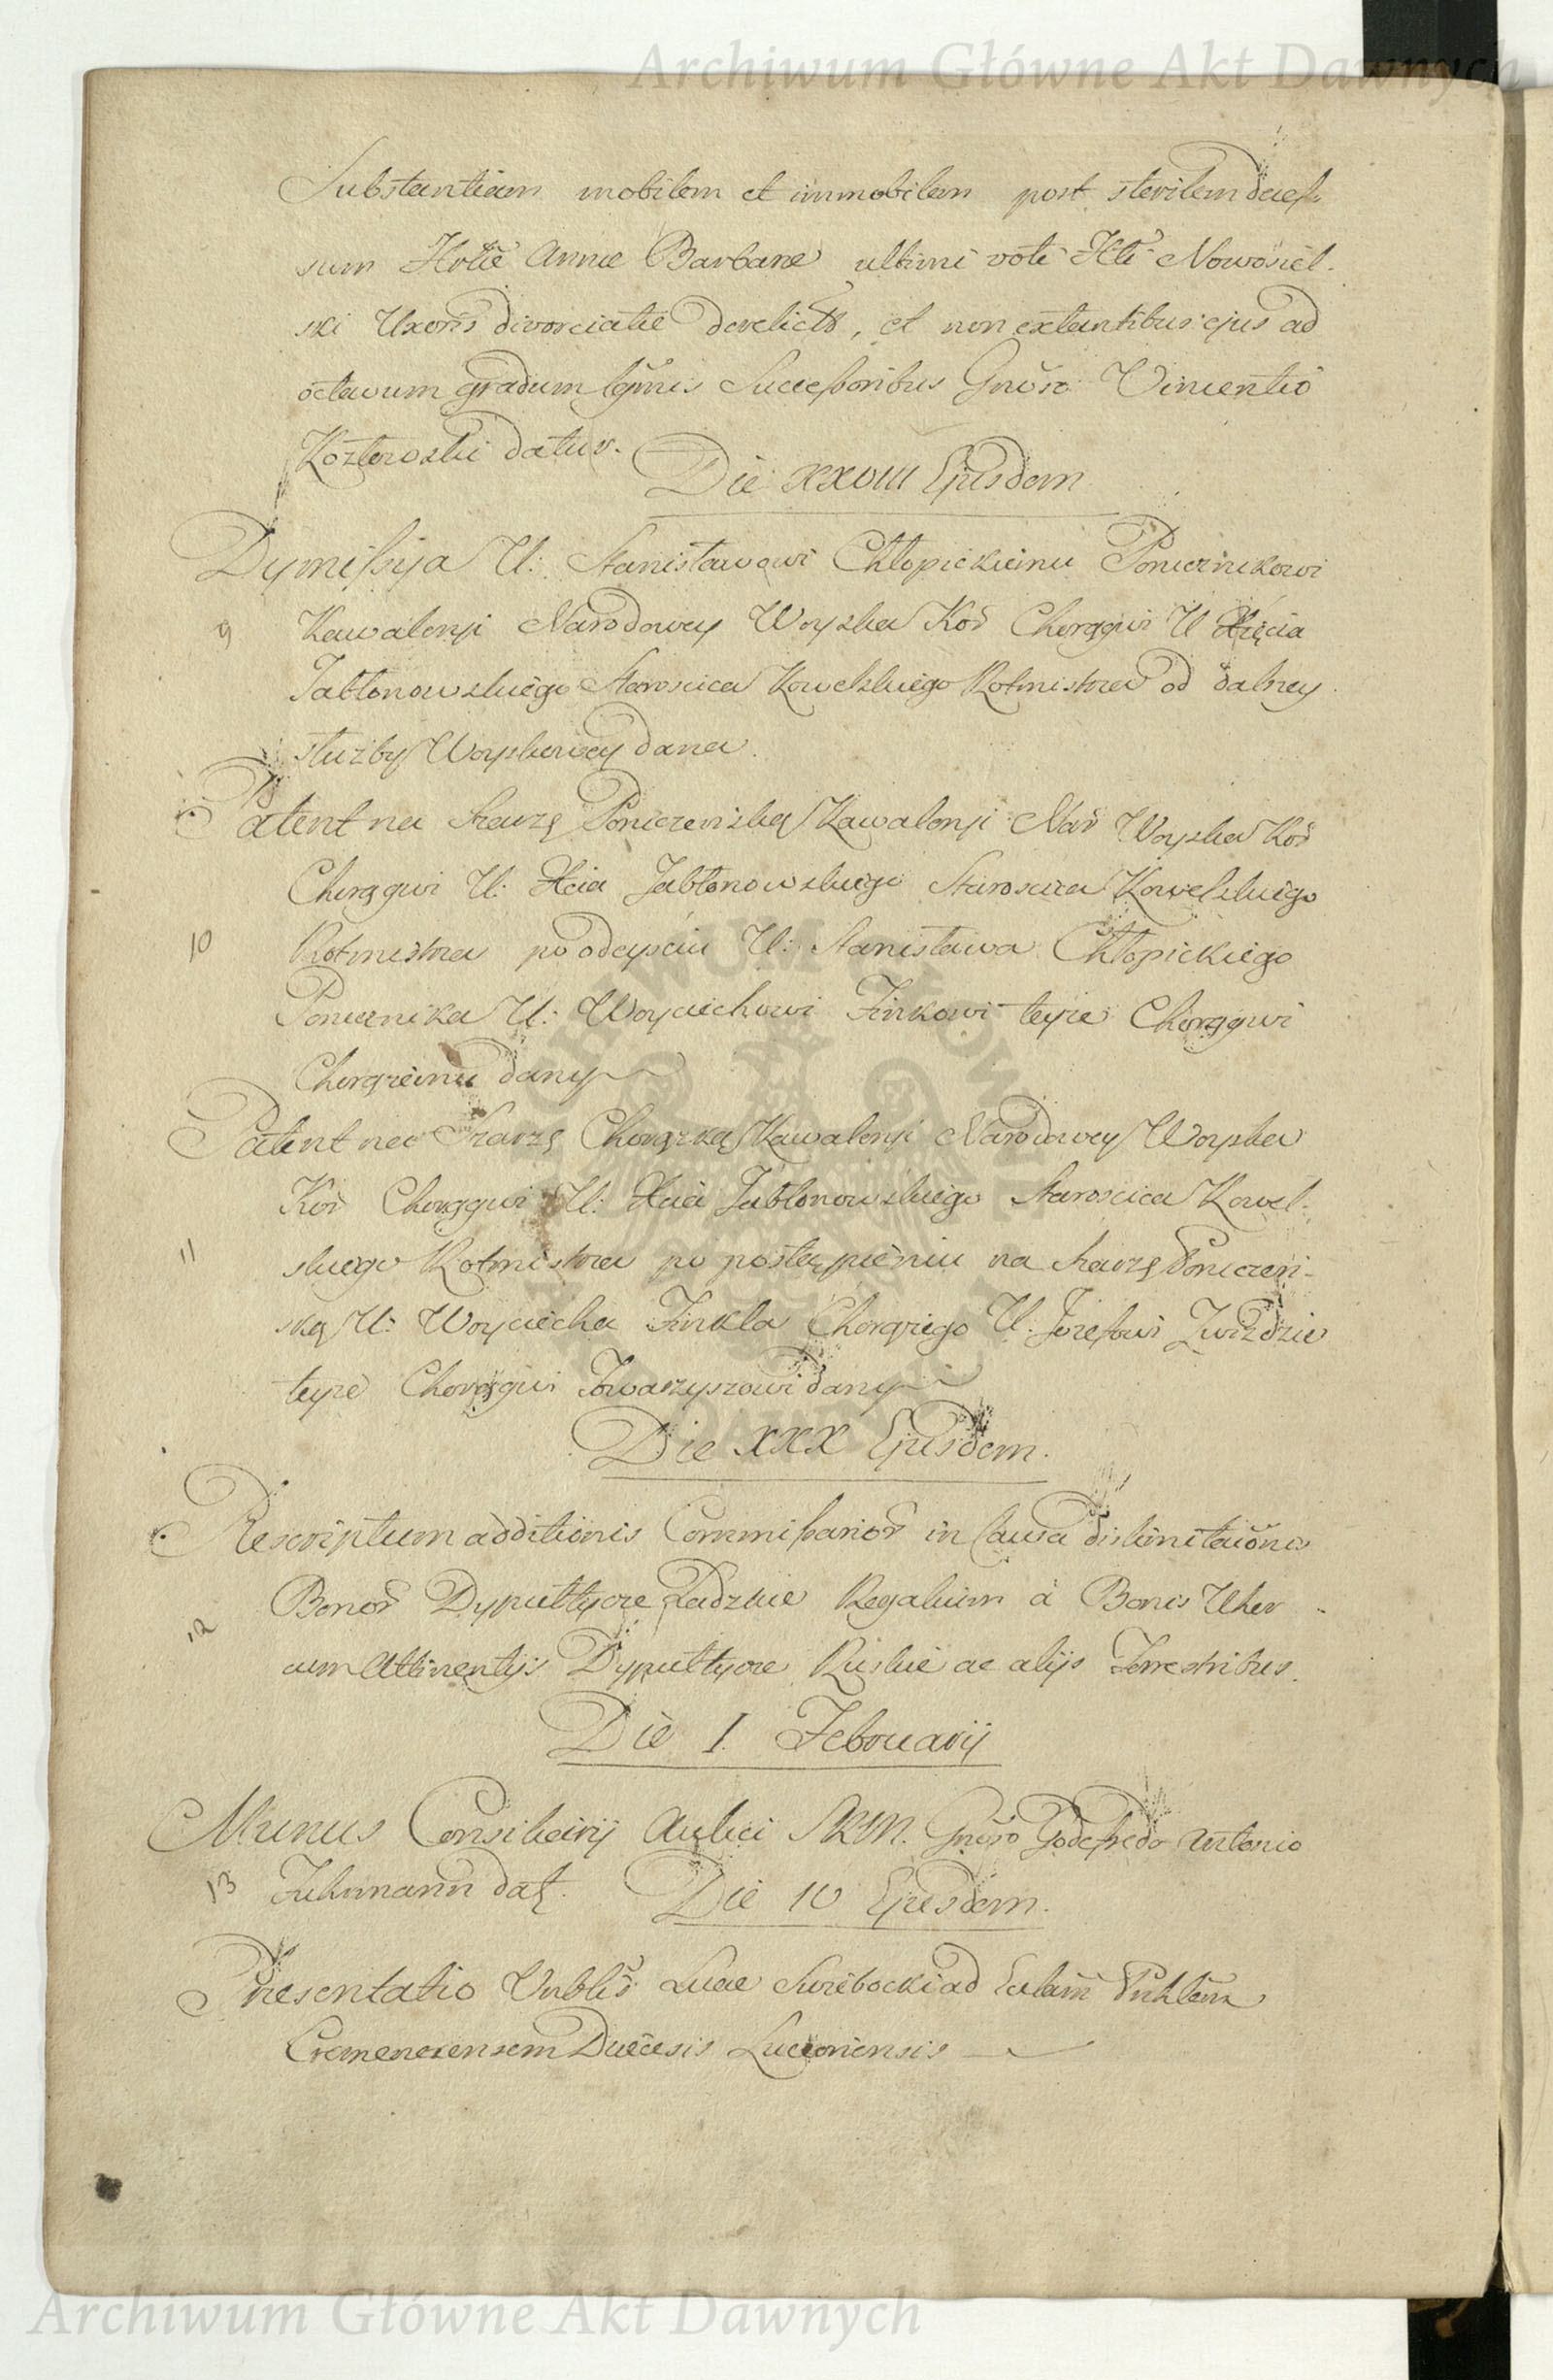 Archiwum Główne Akt Dawnych
Substantiam mobilem et immobilem post sterilem deces
sum Hottae Annae Barbarae ultimi voti Htti Nowosiel-
ski Uxoris divorciatae derelict, et non extantibus ejus ad
octavum gradum lgmis Successoribus Gnoso Vincentio
Kozłowski datur.
Die XXVIII Ejusdem
Dymissyja U: Stanisławowi Chłopickiemu Porucznikowi
9 Kawaleryi Narodowey Woyska Kor Chorągwi U Xięcia
Jabłonowskiego Staroscica Kowelskiego Rotmistrza od dalszey
służby Woyskowey dana.
Patent na Szarzę Poruczenską Kawaleryi Nar Woyska Kor
Chorągwi U: Xcia Jabłonowskiego Staroscica Kowelskiego
10 Rotmistrza po odeysciu U: Stanisława Chłopickiego
Porucznika U: Woyciechowi Finkowi teyze Chorągwi
Chorązemu dany
Patent na Szarzę Chorązką Kawaleryi Narodowey Woyska
Kor Chorągwi U: Xcia Jabłonowskiego Staroscica Kowel-
11 skiego Rotmistrza po postąpieniu na Szarzę Poruczen-
ską U: Woyciecha Finkla Chorązego U. Jozefowi Zwizdzie
teyze Chorągwi Towarzyszowi dany
Die XXX Ejusdem.
Rescriptum additionis Commissarior in Causa dislimitaonis
Bonor Dyputtycze Ladzkie Regalium à Bonis Uher
12 cum Attinentijs Dyputtycze Ruskie ac alijs Terrestribus.
Die 1. Februarij
Munus Consiliarij Aulici SRM. Gnoso Godefredo Antonio
13 Fuhrmann dat. Die 10 Ejusdem.
Praesentatio Vnblis Lucae Surebocki ad Eclam
Cremenecensem Diaecesis Luceoriensis
Archiwum Główne Akt Dawnych